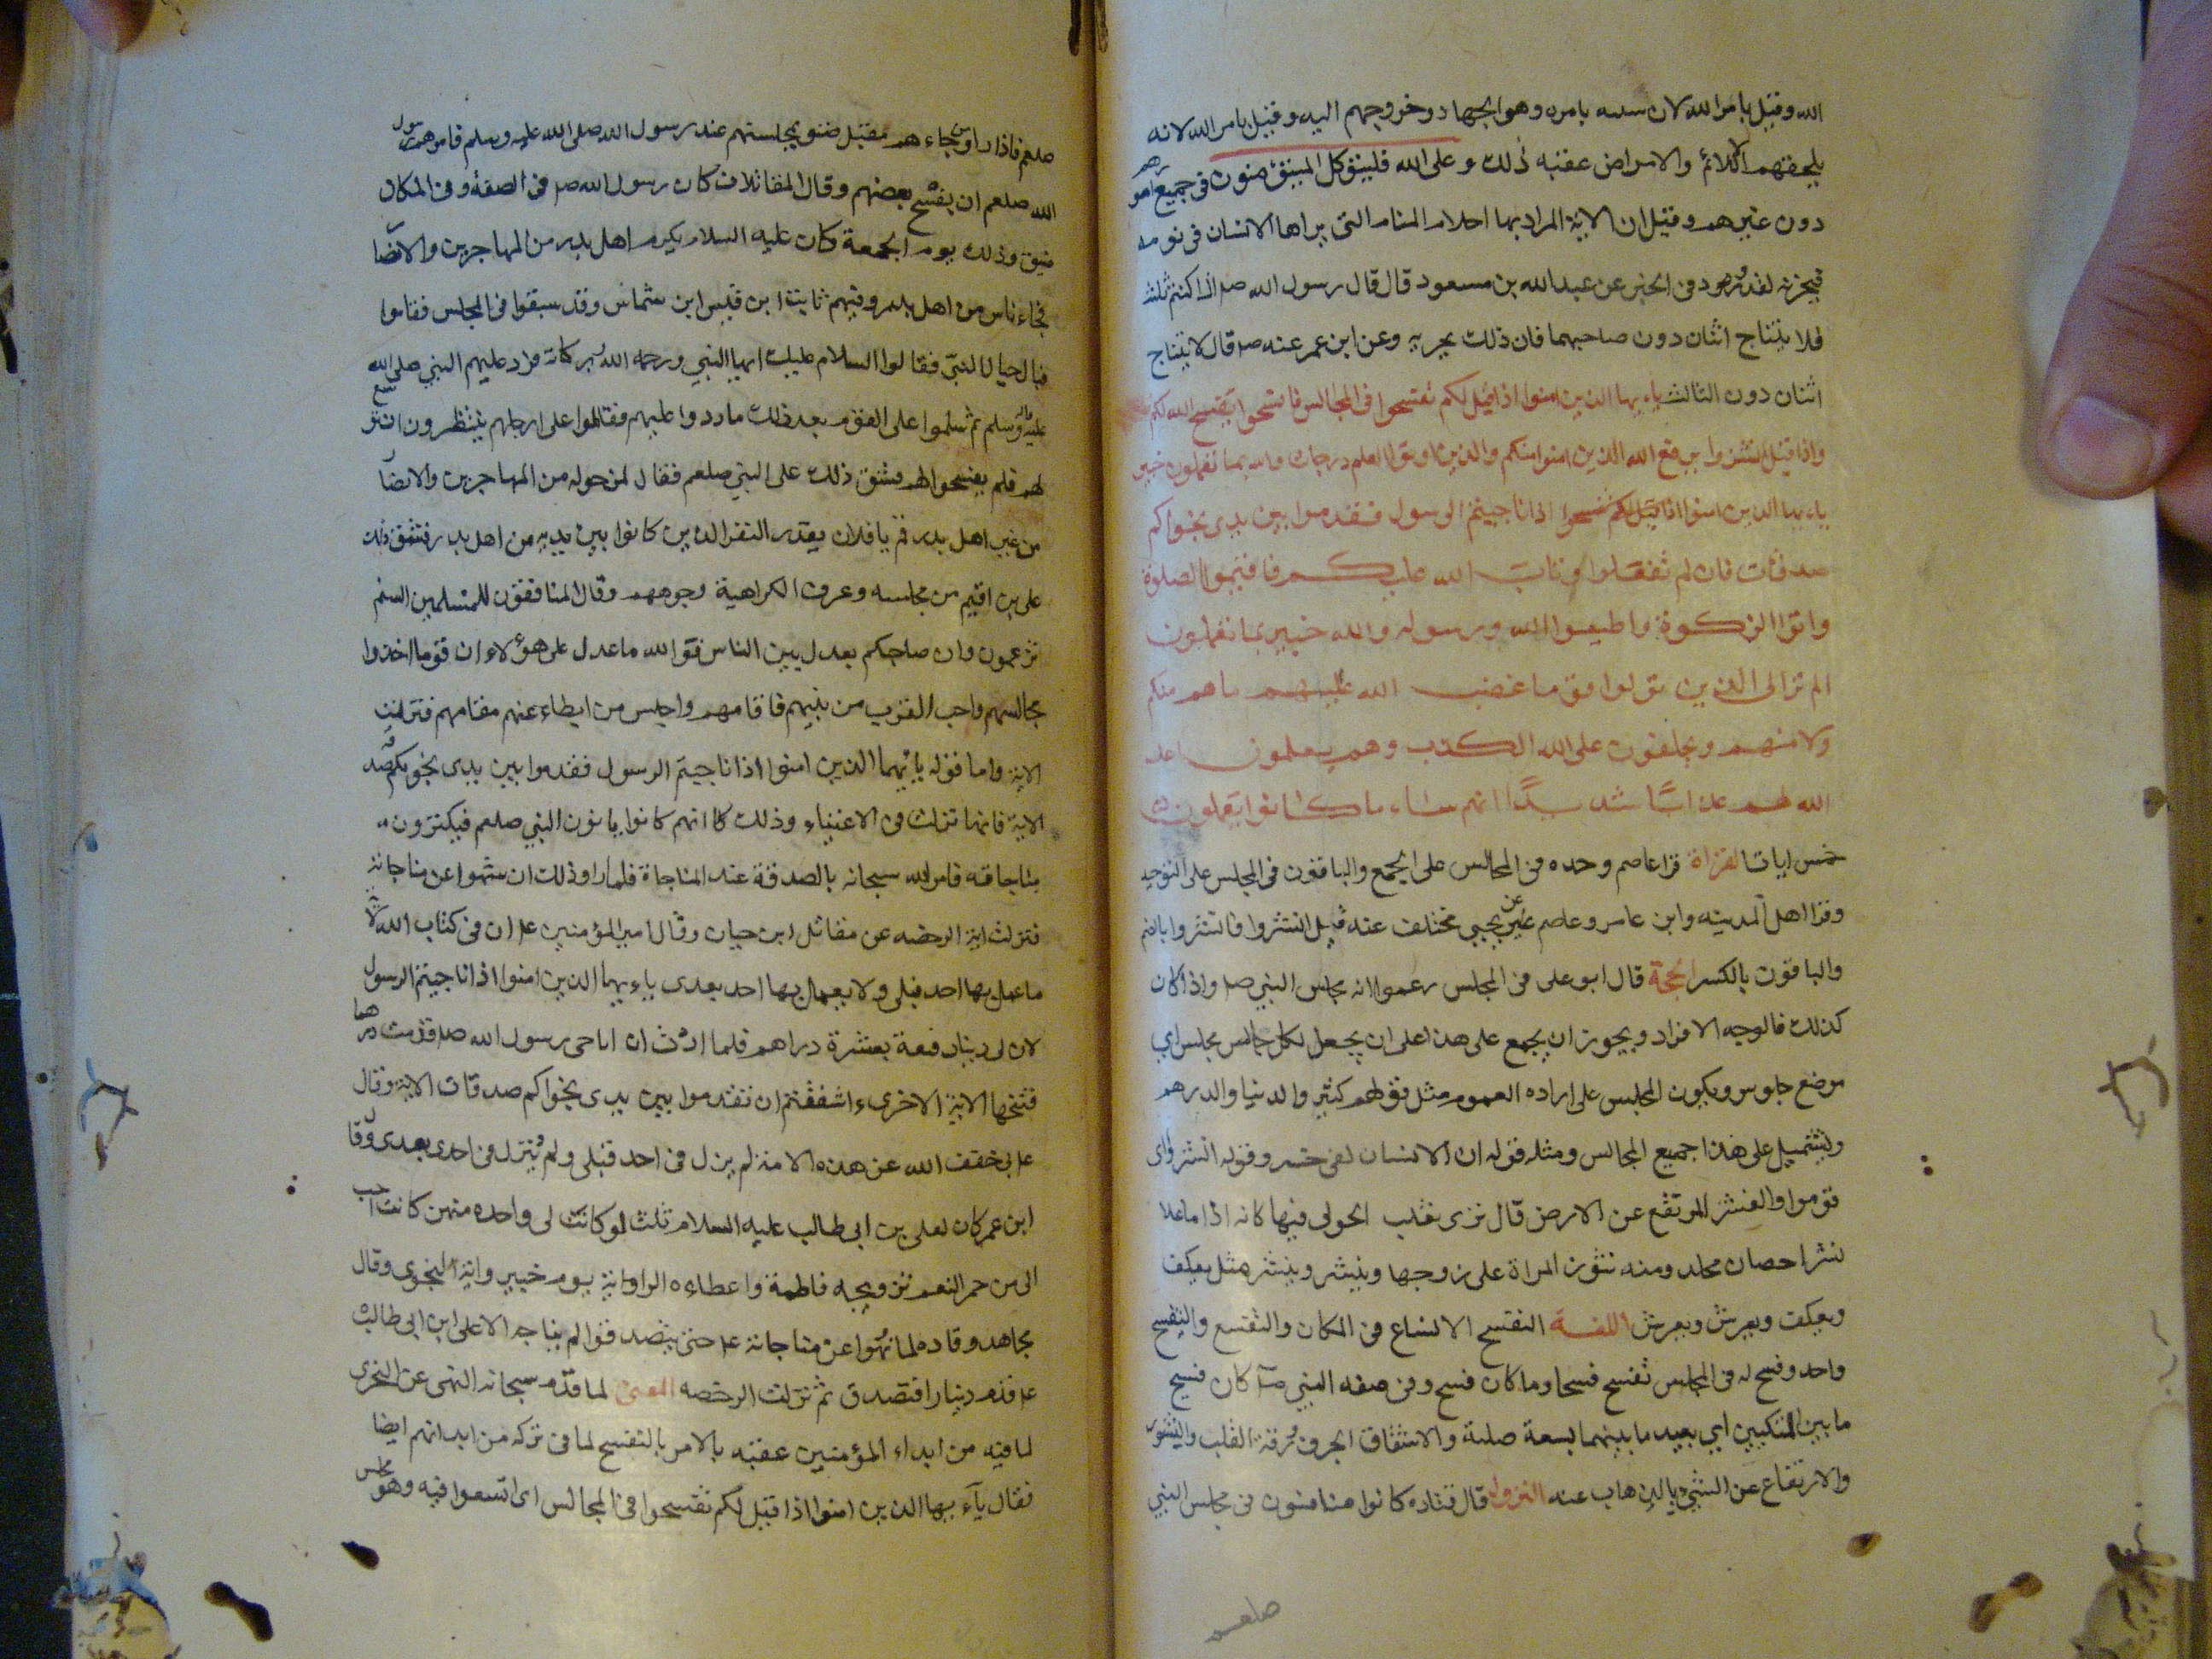 الله وقيل بامر الله لان سببه بامره وهو الجهاد وخروجهم اليه وقيل بامر الله لانه
يلحقهم الالائم والامراض عقبه ذلك وعلى الله فليتوكل المؤمنون في جميع امورهم
دون غيرهم وقيل ان الاية المراد بها احلام المنام التي يراها الانسان في نومه
فيحزنه لقد ورد في الخبر عن عبدالله بن مسعود قال قال رسول الله صلى اذا كنتم ثلث
فلا يتناج اثنان دون صاحبهما فان ذلك يحزنه وعن ابن عمر عنه صلى قال لا يتناج
اثنان دون الثالث ياءيها الذين امنوا اذا قيل لكم تفسحوا في المجالس فافسحوا يفسح الله لكم
واذا قيل انشزوا يرفع الله الذين امنوا منكم والذين اوتوا العلم درجات والله بما تعملون خبير
ياءيها الذين امنوا اذا قيل لكم تفسحوا اذا ناجيتم الرسول فقدموا بين يدى نجواكم
صدقات فان لم تفعلوا وتاب الله عليكم فاقيموا الصلوة
واتوا الزكوة واطيعوا الله ورسوله والله خبير بما تعملون
الم تر الى الذين تولوا قوما غضب الله عليهم ما هم منكم
ولا منهم ويحلفون على الله الكذب وهم يعلمون اعد
الله لهم عذابًا شديدًا انهم ساء ما كانوا يعملون
خمس ايات القراة قرا عاصم وحده في المجالس على الجمع والباقون في المجلس على التوحيد
وقرا اهل المدينه وابن عامر وعاصم عن يحيى مختلف عنه قيل انشزوا فانشزوا بالضم
والباقون بالكسر الحجة قال ابو على في المجلس زعموا انه مجلس النبي صلى واذا كان
كذلك فالوجه الافراد ويجوز ان يجمع على هذا على ان يجعل لكل جالس مجلس اي
موضع جلوس ويكون المجلس على اراده العموم مثل قولهم كثير والدينا والدرهم
ويشتميل على هذا جميع المجالس ومثله قوله ان الانسان لفي خسر وقوله انشزوا اى
قوموا والنشز المرتفع عن الارض قال نرى الحولى فيها كانه اذا ما علا
نشزا حصان مجلد ومنه نشوز المراة على زوجها وينشز وينشز مثل يعكف
ويعكف ويعرش ويعرش اللغة التفسح الاتساع في المكان والتفسح والتفسيح
واحد وفسح له في المجلس تفسح فسحا وما كان فسح وفي صفه النبي صلى كان فسيح
ما بين المنكبين اي بعيد ما بينهما لسعة صدره والاشقاق الحرف ورقة القلب والنشوز
والارتفاع عن الشيء بالذهاب عنه النزول قال قتاده كانوا متنافسون في مجلس النبي
صلعم
صلعم فاذا راو من جاءهم مقبل ضنو بمجلستهم عند رسول الله صلى الله عليه وسلم فامرهم رسول
الله صلعم ان يفسح بعضهم وقال المقاتلان كان رسول الله صلى في الصفة وفي المكان
ضيق وذلك يوم الجمعة وكان عليه السلام يكرم اهل بدر من المهاجرين والانصا
فجاء ناس من اهل بدر وفيهم ثابت ابن قيس ابن شماس وقد سبقوا في المجلس فقاموا
حيال النبي فقالوا السلام عليك ايها النبي ورحمة الله وبركاته فرد عليهم النبي صلى الله
عليه واله وسلم ثم سلموا على القوم بعد ذلك ما ردوا عليهم فقاموا على ارجلهم ينتظرون ان توسع
لهم فلم يفسحوا لهم فشق ذلك على النبي صلعم فقال لمن حوله من المهاجرين والانصا
من غير اهل بدر قم يا فلان بقدر النفر الذين كانوا بين يديه من اهل بدر فشق ذلك
على من اقيم من مجلسه وعرف الكراهية وجوههم وقال المنافقون للمسلمين الستم
تزعمون وان صاحبكم يعدل بين الناس فوالله ما عدل على هؤلاء ان قوما اخذوا
مجالسهم واحب القرب من نبيهم فاقامهم واجلس من ابطاء عنهم مقامهم فنزلت
الاية واما قوله يا ايهما الذين امنوا اذا ناجيتم الرسول فقدموا بين يدى نجويكم صدقه
الاية فانها نزلت في الاغنياء وذلك كا انهم كانوا ياتون النبي صلعم فيكثرون
مناجاته فامر الله سبحانه بالصدقة عند المناجاة فلما راو ذلك ان تنتهوا عن مناجاته
فنزلت اية الرخصه عن مقاتل ابن حيان وقال امير المؤمنين ع ان في كتاب الله لاية
ما عمل بها احد قبلى ولا يعمل بها احد بعدى ياءيها الذين امنوا اذا ناجيتم الرسول
لان لى دينار فبعة بعشرة دراهم فلما اردت ان اناجى رسول الله صلى قدمت درهما
فنسخها الاية الاخرى ءاشفقتم ان تقدموا بين يدى نجواكم صدقات الاية وقال
ع بي خفف الله عن هذه الامة لم ينزل في احد قبلى ولم ينزل في احدى بعدى وقا
ابن عمر كان لعلى بن ابى طالب عليه السلام ثلث لو كانت لى واحده منهن كانت احب
الى من حمر النعم تزويجه فاطمة واعطاءه الراواية يوم خيبر واية النجوى وقال
مجاهد وقاده لما نهوا عن مناجاته ع حتى يتصدقوا لم يناجه الا على ابن ابى طالب
ع قدم دينارا فتصدق ثم نزلت الرخصه المعنى لما قدم سبحانه النهى عن النجوى
لما فيه من ايداء المؤمنين عقبه بالامر بالتفسح لما في تركه من ايدائهم ايضا
فقال ياءيها الذين امنوا اذا قيل لكم تفسحوا في المجالس اى اتسعوا فيه وهو مجلس